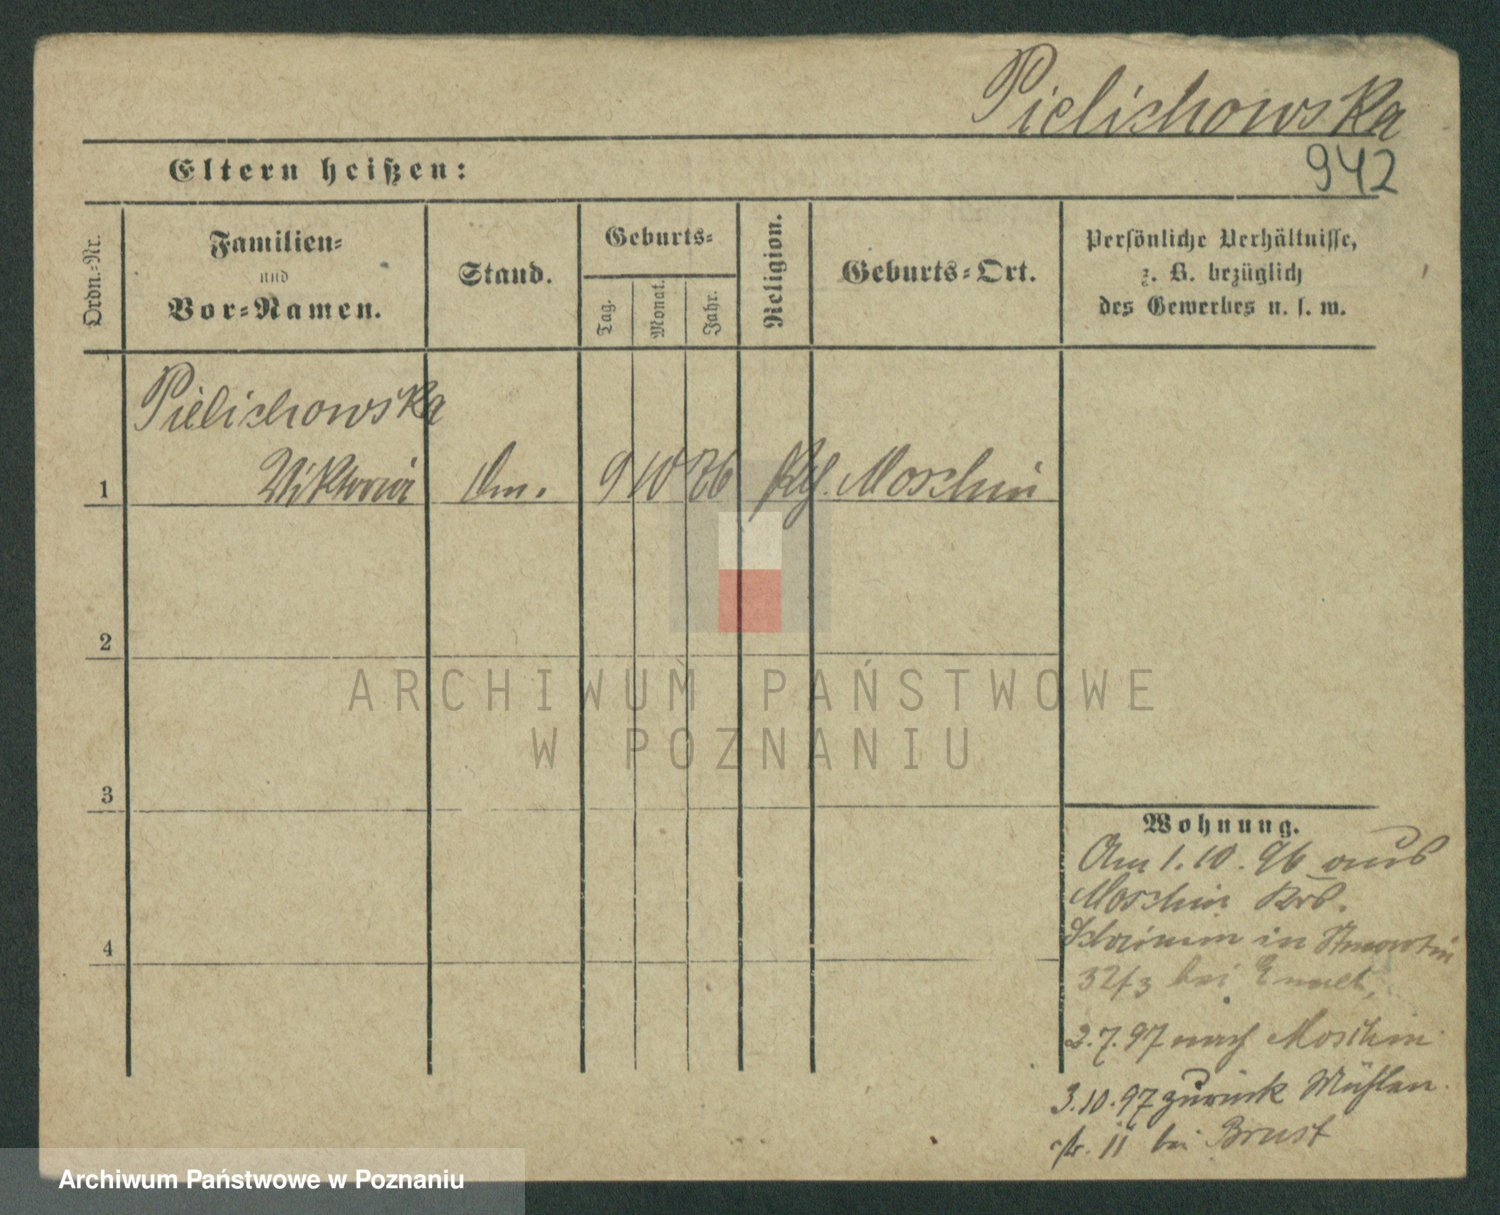 Pielichowska
942
Eltern heißen:
Ordn.-Nr.
Familien-
und
Vor-Namen.
Stand.
Geburts-
Tag.
Monat.
Jahr.
Religion.
Geburts-Ort.
Persönliche Verhältnisse,
z. B. bezüglich
des Gewerbes u. s. w.
Pielichowska
1 Viktoria 9 10 76 Kth. Moschin
2
3
4
Wohnung.
Am 1.10.96 aus
Moschin Krs.
Schrimm in St martin
32/3 bei
2.7.97 nach Moschin
3.10.97 zurück Mühlen
str. 11 bei Brust
ARCHIWUM PAŃSTWOWE
W POZNANIU
Archiwum Państwowe w Poznaniu